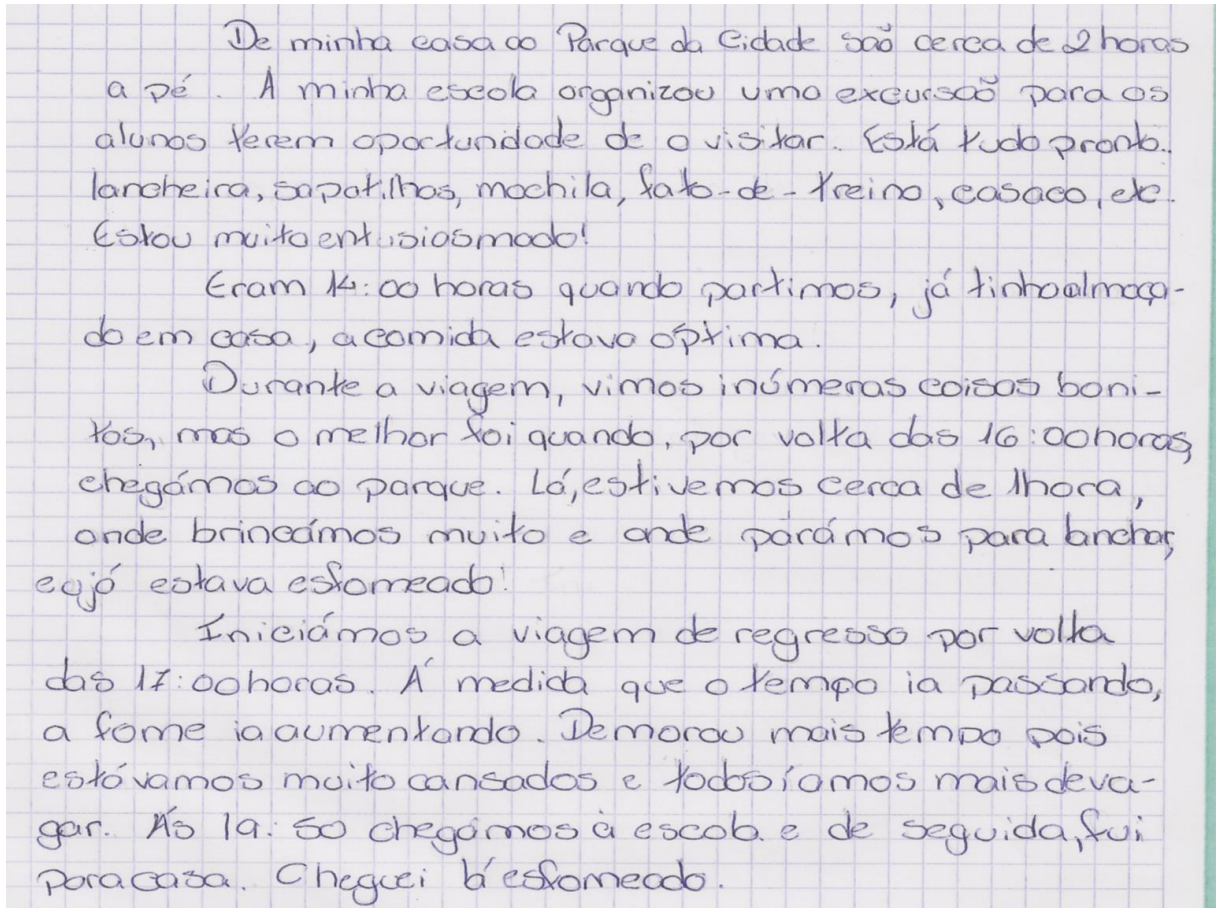 De minha casa ao Parque da Cidade são cerca de 2 horas
a pé. A minha escola organizou uma excursão para os
alunos terem oportunidade de o visitar. Está tudo pronto.
lancheira, sapatilhas, mochila, fato-de-treino, casaco, etc.
Estou muito entusiasmado!
Eram 14:00 horas quando partimos, já tinha almoça-
do em casa, a comida estava óptima.
Durante a viagem, vimos inúmeras coisas boni-
tas, mas o melhor foi quando, por volta das 16:00 horas,
chegámos ao parque. Lá, estivemos cerca de 1 hora,
onde brincámos muito e onde parámos para lanchar,
já estava esfomeado!
Iniciámos a viagem de regresso por volta
das 17:00 horas. Á medida que o tempo ia passando,
a fome ia aumentando. Demorou mais tempo pois
estávamos muito cansados e todos íamos mais deva-
gar. Ás 19:50 chegámos à escola e de seguida, fui
para casa. Cheguei lá esfomeado.